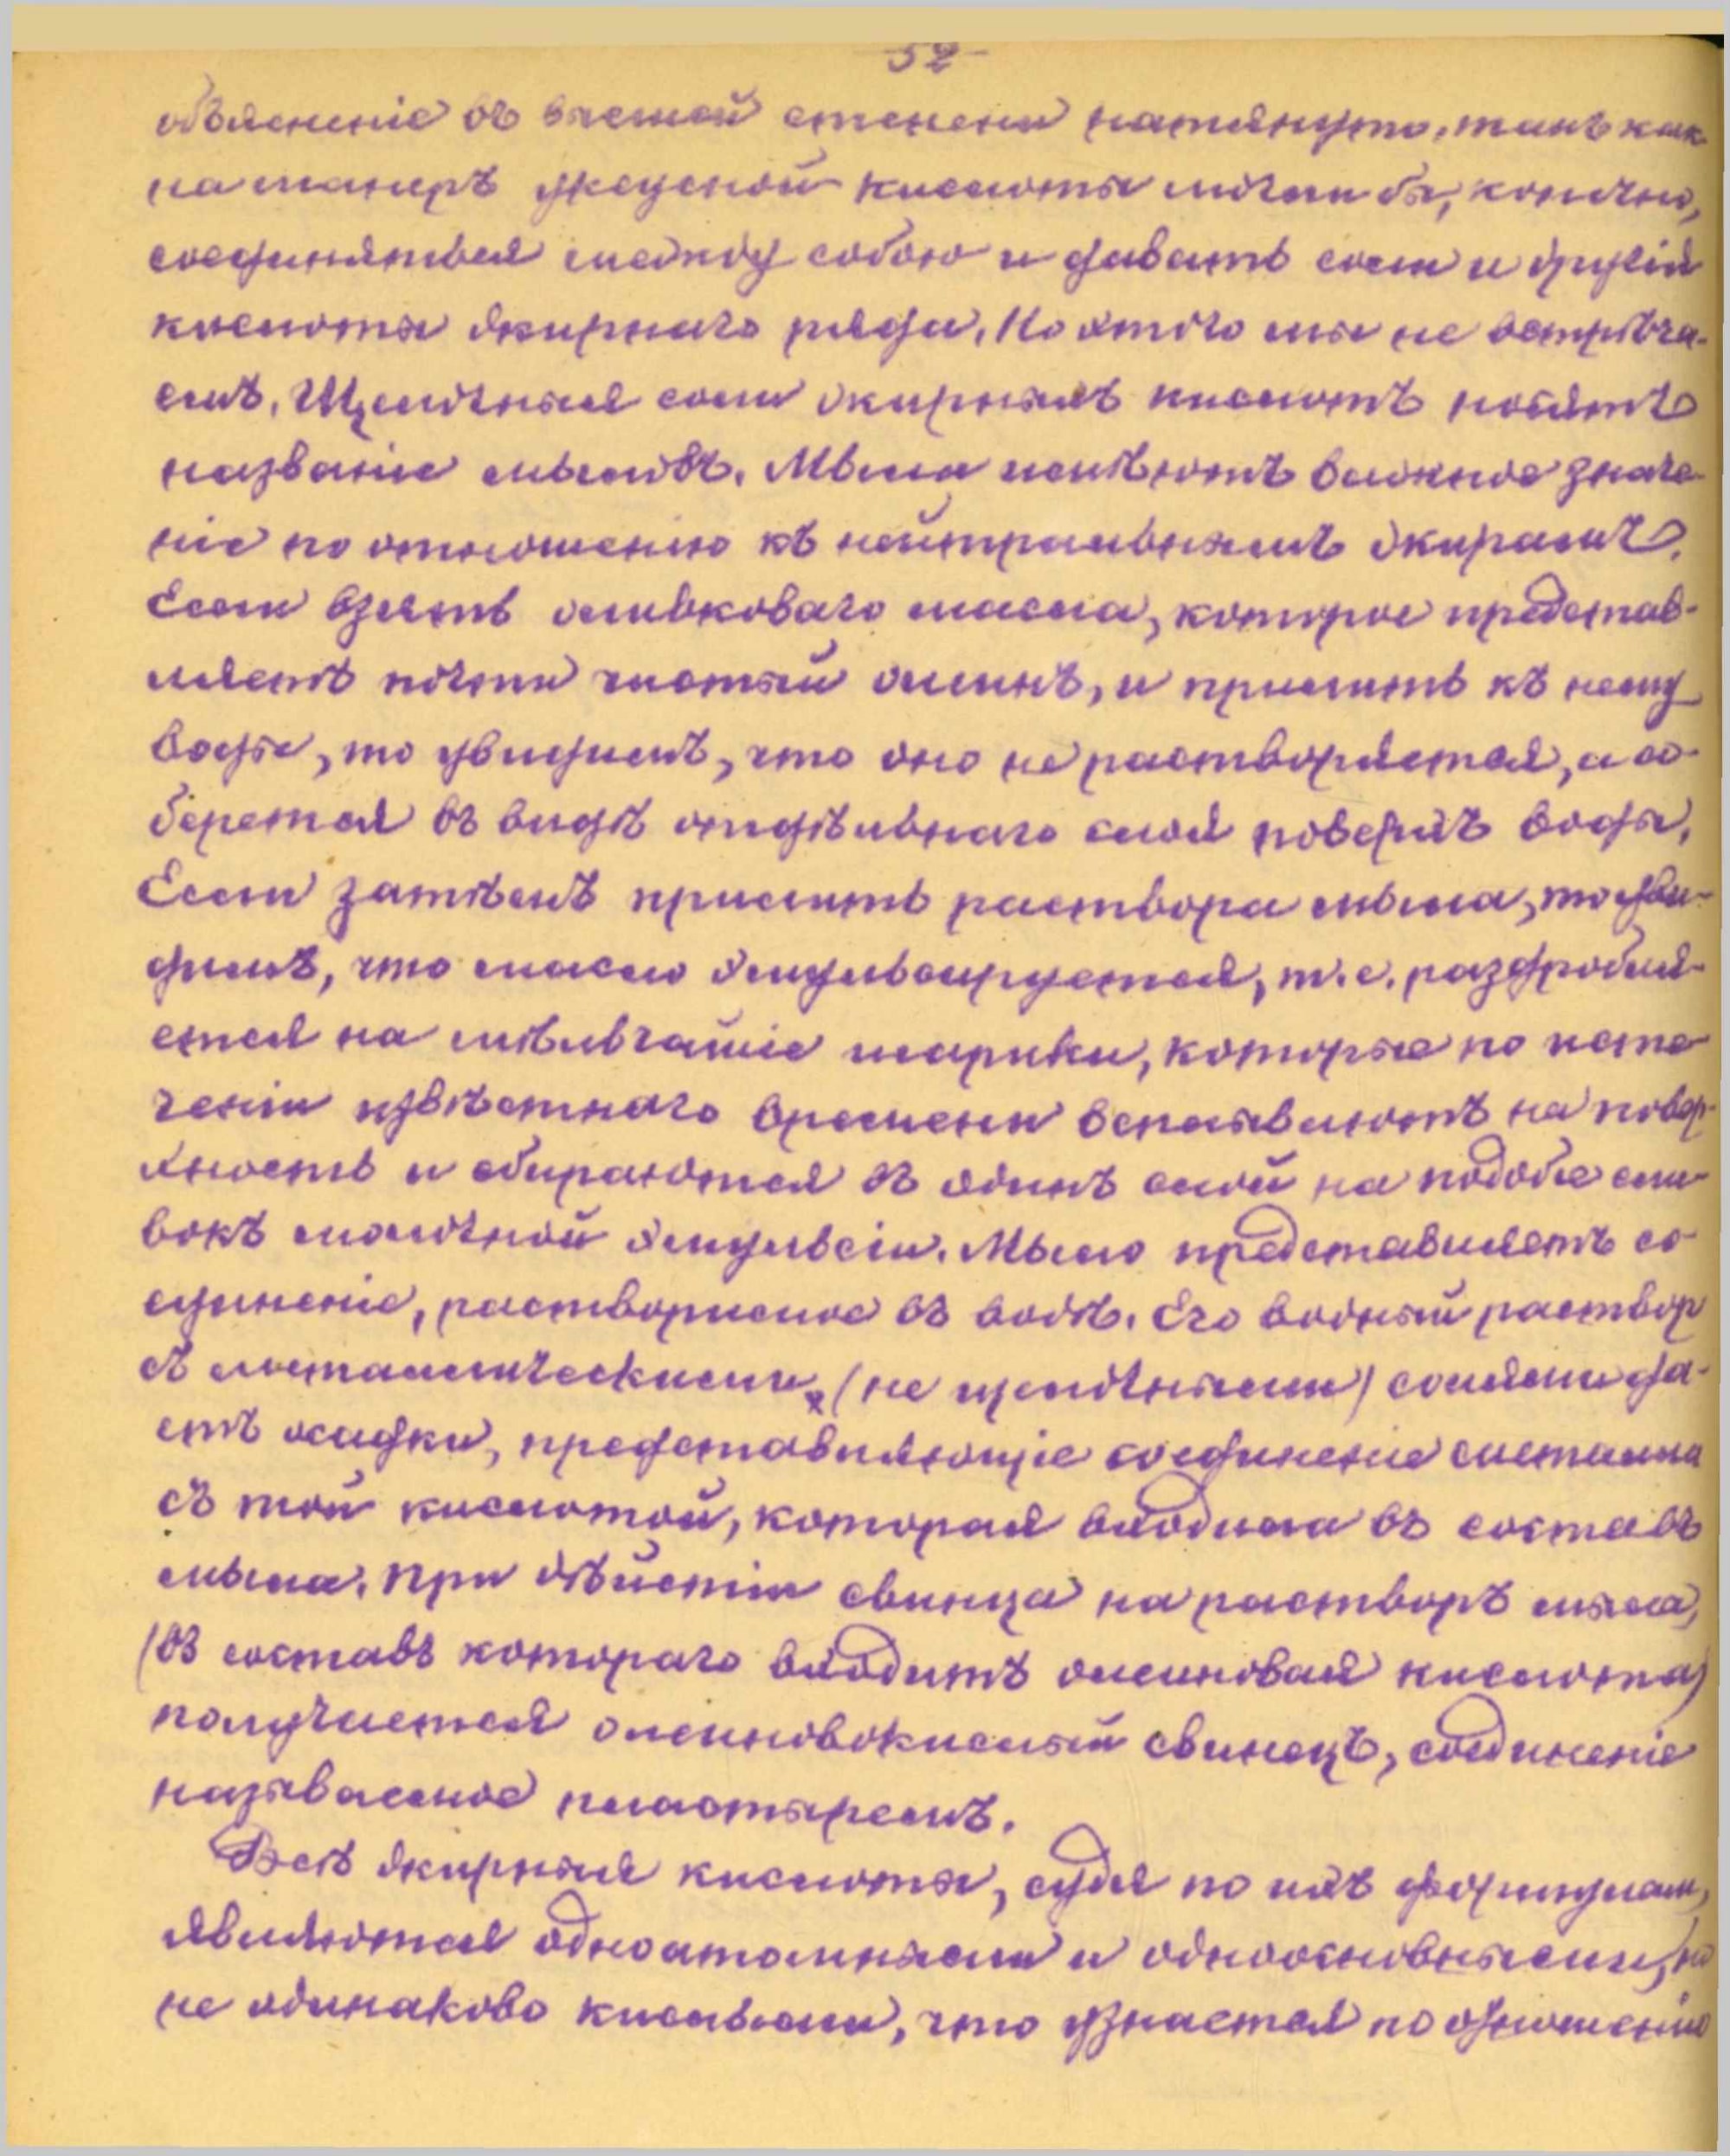 32
объясненіе въ высшей степени натянуто, такъ какъ
на манеръ уксусной кислоты могли бы, конечно,
соединяться между собою и давать соли и другія
кислоты жирнаго ряда. Но этого мы не встрѣча-
емъ. Щелочныя соли жирныхъ кислотъ носятъ
названіе мылъ. Мыла имѣютъ важное значе-
ніе по отношенію къ нейтральнымъ жирамъ.
Если взять оливковаго масла, которое представ-
ляетъ почти чистый олеинъ, и прилить къ нему
воды, то увидимъ, что оно не растворяется, а со-
берется въ видѣ отдѣльнаго слоя поверхъ воды.
Если затѣмъ прилить раствора мыла, то уви-
димъ, что масло эмульсируется, т.е. раздробля-
ется на мѣльчайшіе шарики, которые по исте-
ченіи извѣстнаго времени всплываютъ на повер-
хность и сбираются въ одинъ слой на подобіе сли-
вокъ молочной эмульсіи. Мыло представляетъ со-
единеніе, растворимое въ водѣ. Его водный раствор
съ металлическими (не щелочными) солями да-
етъ осадки, представляющіе соединеніе металла
съ той кислотой, которая входила въ составъ
мыла. При дѣйствіи свинца на растворъ мыла,
(въ составъ котораго входитъ олеиновая кислота)
получается олеиновокислый свинецъ, соединеніе
называемое пластыремъ.
Всѣ жирныя кислоты, судя по ихъ формулам,
являются одноатомными и одноосновными, но
не одинаково кислыми, что узнается по отношенію